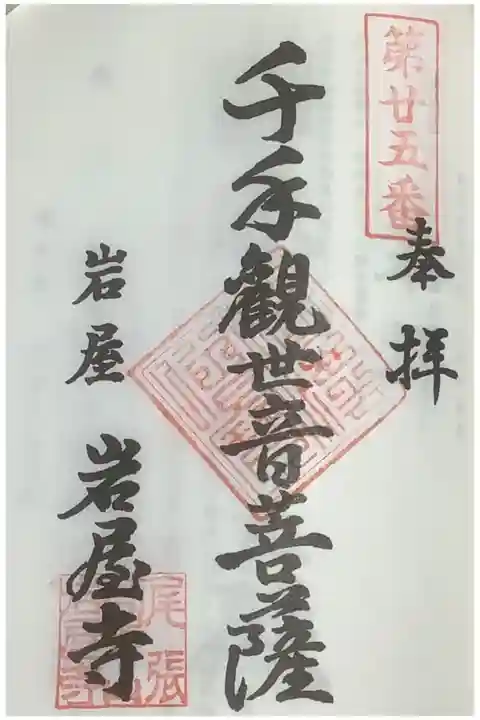 第廿五番
奉拝
千手観世音菩薩
岩屋 岩屋寺
尾張